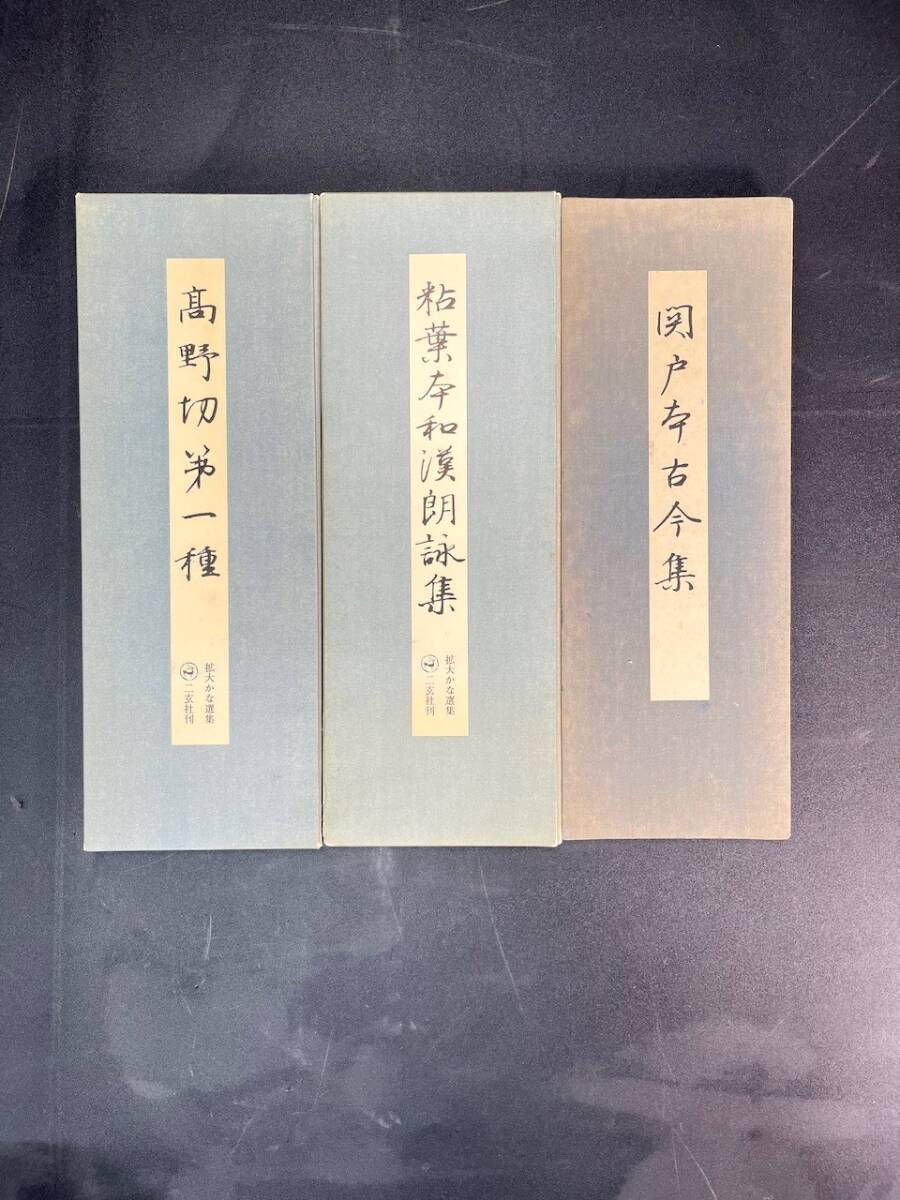 高野切第一種
拡大かな選集
二玄社刊
粘葉本和漢朗詠集
拡大かな選集
二玄社刊
関戸本古今集